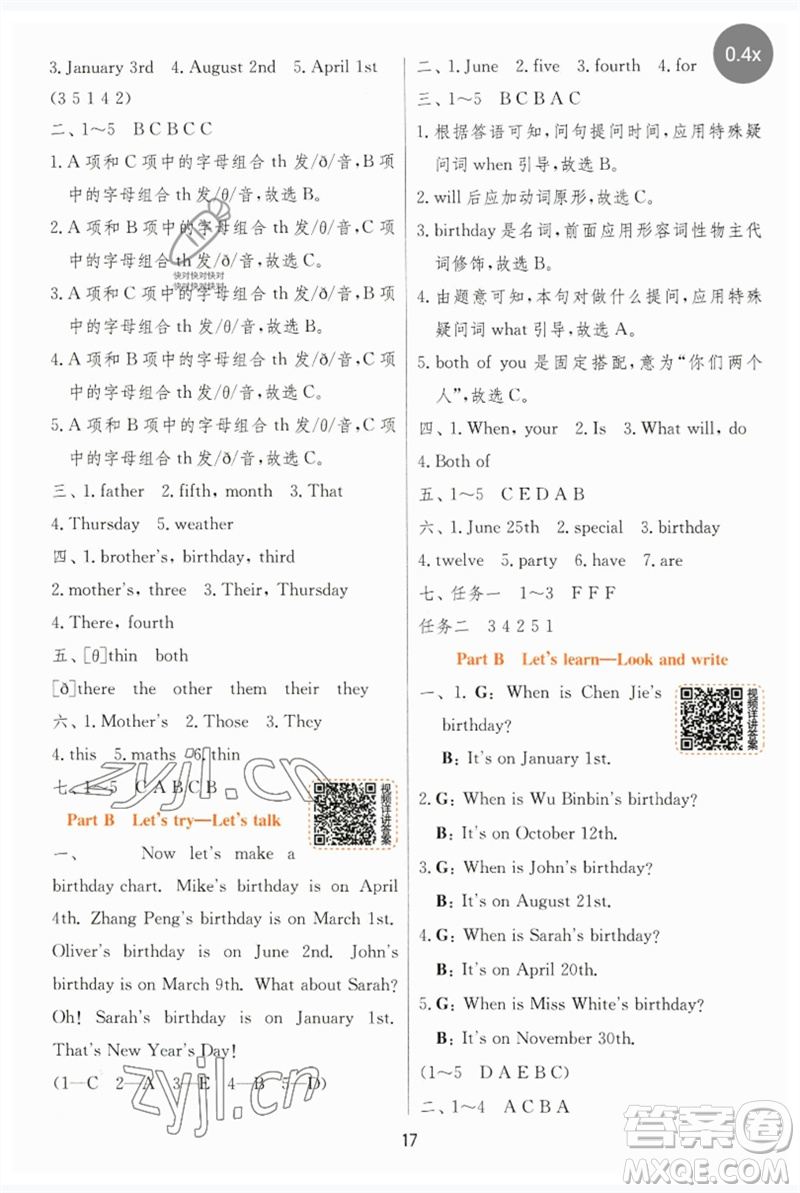 0.4x
3. January 3rd 4. August 2nd 5. April 1st
(3 5 1 4 2)
二、1～5 B C B C C
1. A 项和 C 项中的字母组合 th 发/ð/音,B 项
中的字母组合 th 发/θ/音,故选 B。
2. A 项和 B 项中的字母组合 th 发/θ/音,C 项
中的字母组合 th 发/ð/音,故选 C。
3. A 项和 C 项中的字母组合 th 发/θ/音,B 项
中的字母组合 th 发/ð/音,故选 B。
4. A 项和 B 项中的字母组合 th 发/ð/音,C 项
中的字母组合 th 发/θ/音,故选 C。
5. A 项和 B 项中的字母组合 th 发/θ/音,C 项
中的字母组合 th 发/ð/音,故选 C。
三、1. father 2. fifth, month 3. That
4. Thursday 5. weather
四、1. brother's, birthday, third
2. mother's, three 3. Their, Thursday
4. There, fourth
五、[θ]thin both
[ð]there the other them their they
六、1. Mother's 2. Those 3. They
4. this 5. maths 6. thin
七、1～5 C A B C B
Part B Let's try—Let's talk
视频详讲答案
一、 Now let's make a
birthday chart. Mike's birthday is on April
4th. Zhang Peng's birthday is on March 1st.
Oliver's birthday is on June 2nd. John's
birthday is on March 9th. What about Sarah?
Oh! Sarah's birthday is on January 1st.
That's New Year's Day!
(1—C 2—A 3—E 4—B 5—D)
二、1. June 2. five 3. fourth 4. for
三、B C B A C
1. 根据答语可知,问句提问时间,应用特殊疑
问词 when 引导,故选 B。
2. will 后应加动词原形,故选 C。
3. birthday 是名词,前面应用形容词性物主代
词修饰,故选 B。
4. 由题意可知,本句对做什么提问,应用特殊
疑问词 what 引导,故选 A。
5. both of you 是固定搭配,意为“你们两个
人”,故选 C。
四、1. When, your 2. Is 3. What will, do
4. Both of
五、1～5 C E D A B
六、1. June 25th 2. special 3. birthday
4. twelve 5. party 6. have 7. are
七、任务一 1～3 F F F
任务二 3 4 2 5 1
Part B Let's learn—Look and write
视频详讲答案
一、1. G: When is Chen Jie's
birthday?
B: It's on January 1st.
2. G: When is Wu Binbin's birthday?
B: It's on October 12th.
3. G: When is John's birthday?
B: It's on August 21st.
4. G: When is Sarah's birthday?
B: It's on April 20th.
5. G: When is Miss White's birthday?
B: It's on November 30th.
(1～5 D A E B C)
二、1～4 A C B A
17
快对快对快对
快对快对快对
zyjl.cn
zyjl.cn
答案圈
MXQE.COM